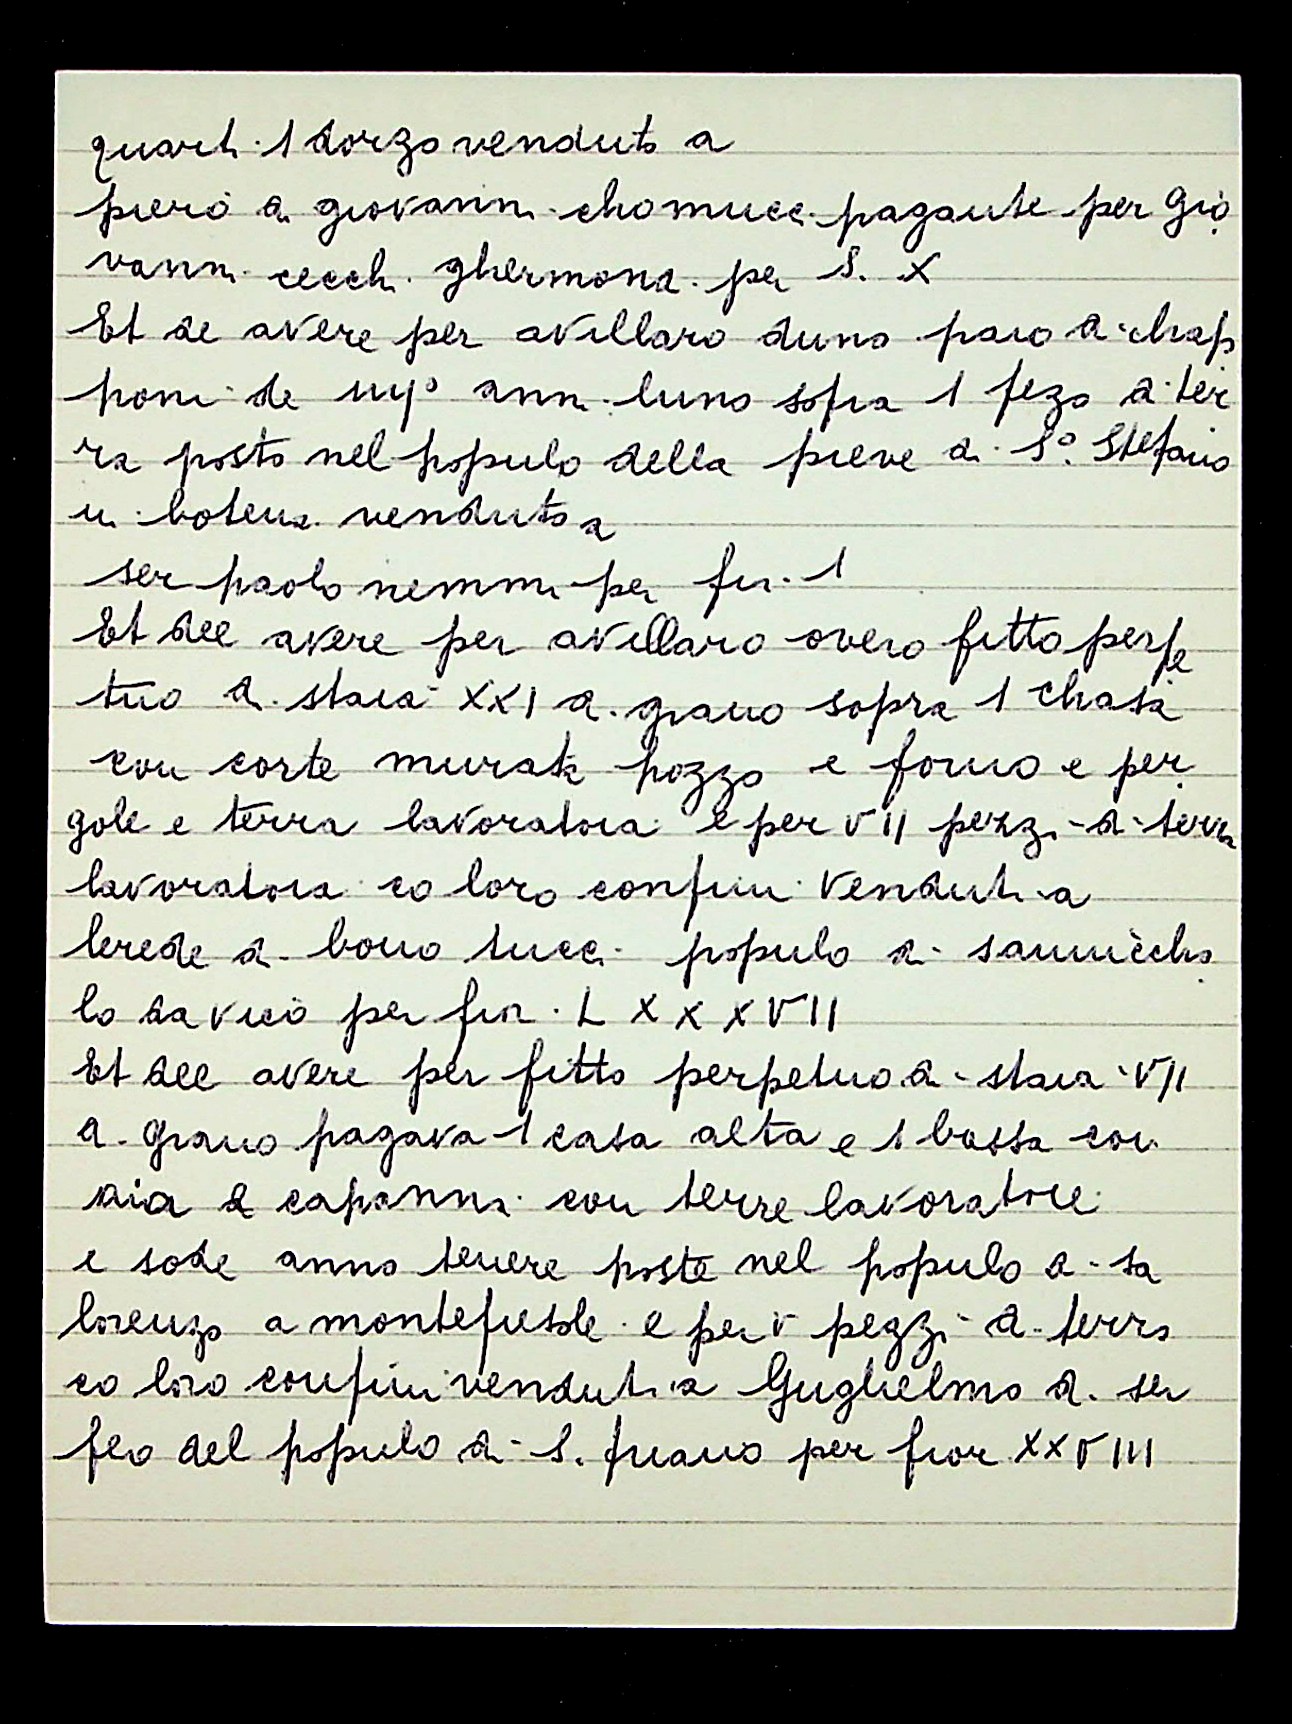 quarti · 1 dorzo venduto a
piero di giovanni · chomucci · pagante per gio
vanni · cecchi · ghermondi · per S. X
Et de avere per avillaro duno paio di · chap
poni · de iiijº anni · luno sopra 1 pezo di · ter
ra posto nel populo della pieve di · Sº. Stefano
in · botena · venduto a
ser paolo nemmi per fir · 1
Et dee avere per avillaro overo fitto perpe
tuo di · staia XXI di · grano sopra 1 chasa
con corte murata pozzo e forno e per
gole e terra lavoratoia · e per VII pezzi - di - terra
lavoratoia · co loro confini · venduti · a
lerede di · bono tucci · populo di · sanniccho
lo da vico per fior · L X X X V I I
Et dee avere per fitto perpetuo di - staia · VII
di · grano pagava 1 casa alta e 1 bassa con
aia e capanna · con terre lavoratoie ·
e sode anno tenere poste nel populo di - sa
lorenzo a montefiesole · e per V pezzi · di · terra
co loro confini venduti · a Guglielmo di · ser
feo del populo di - S. friano per fior XXVIII